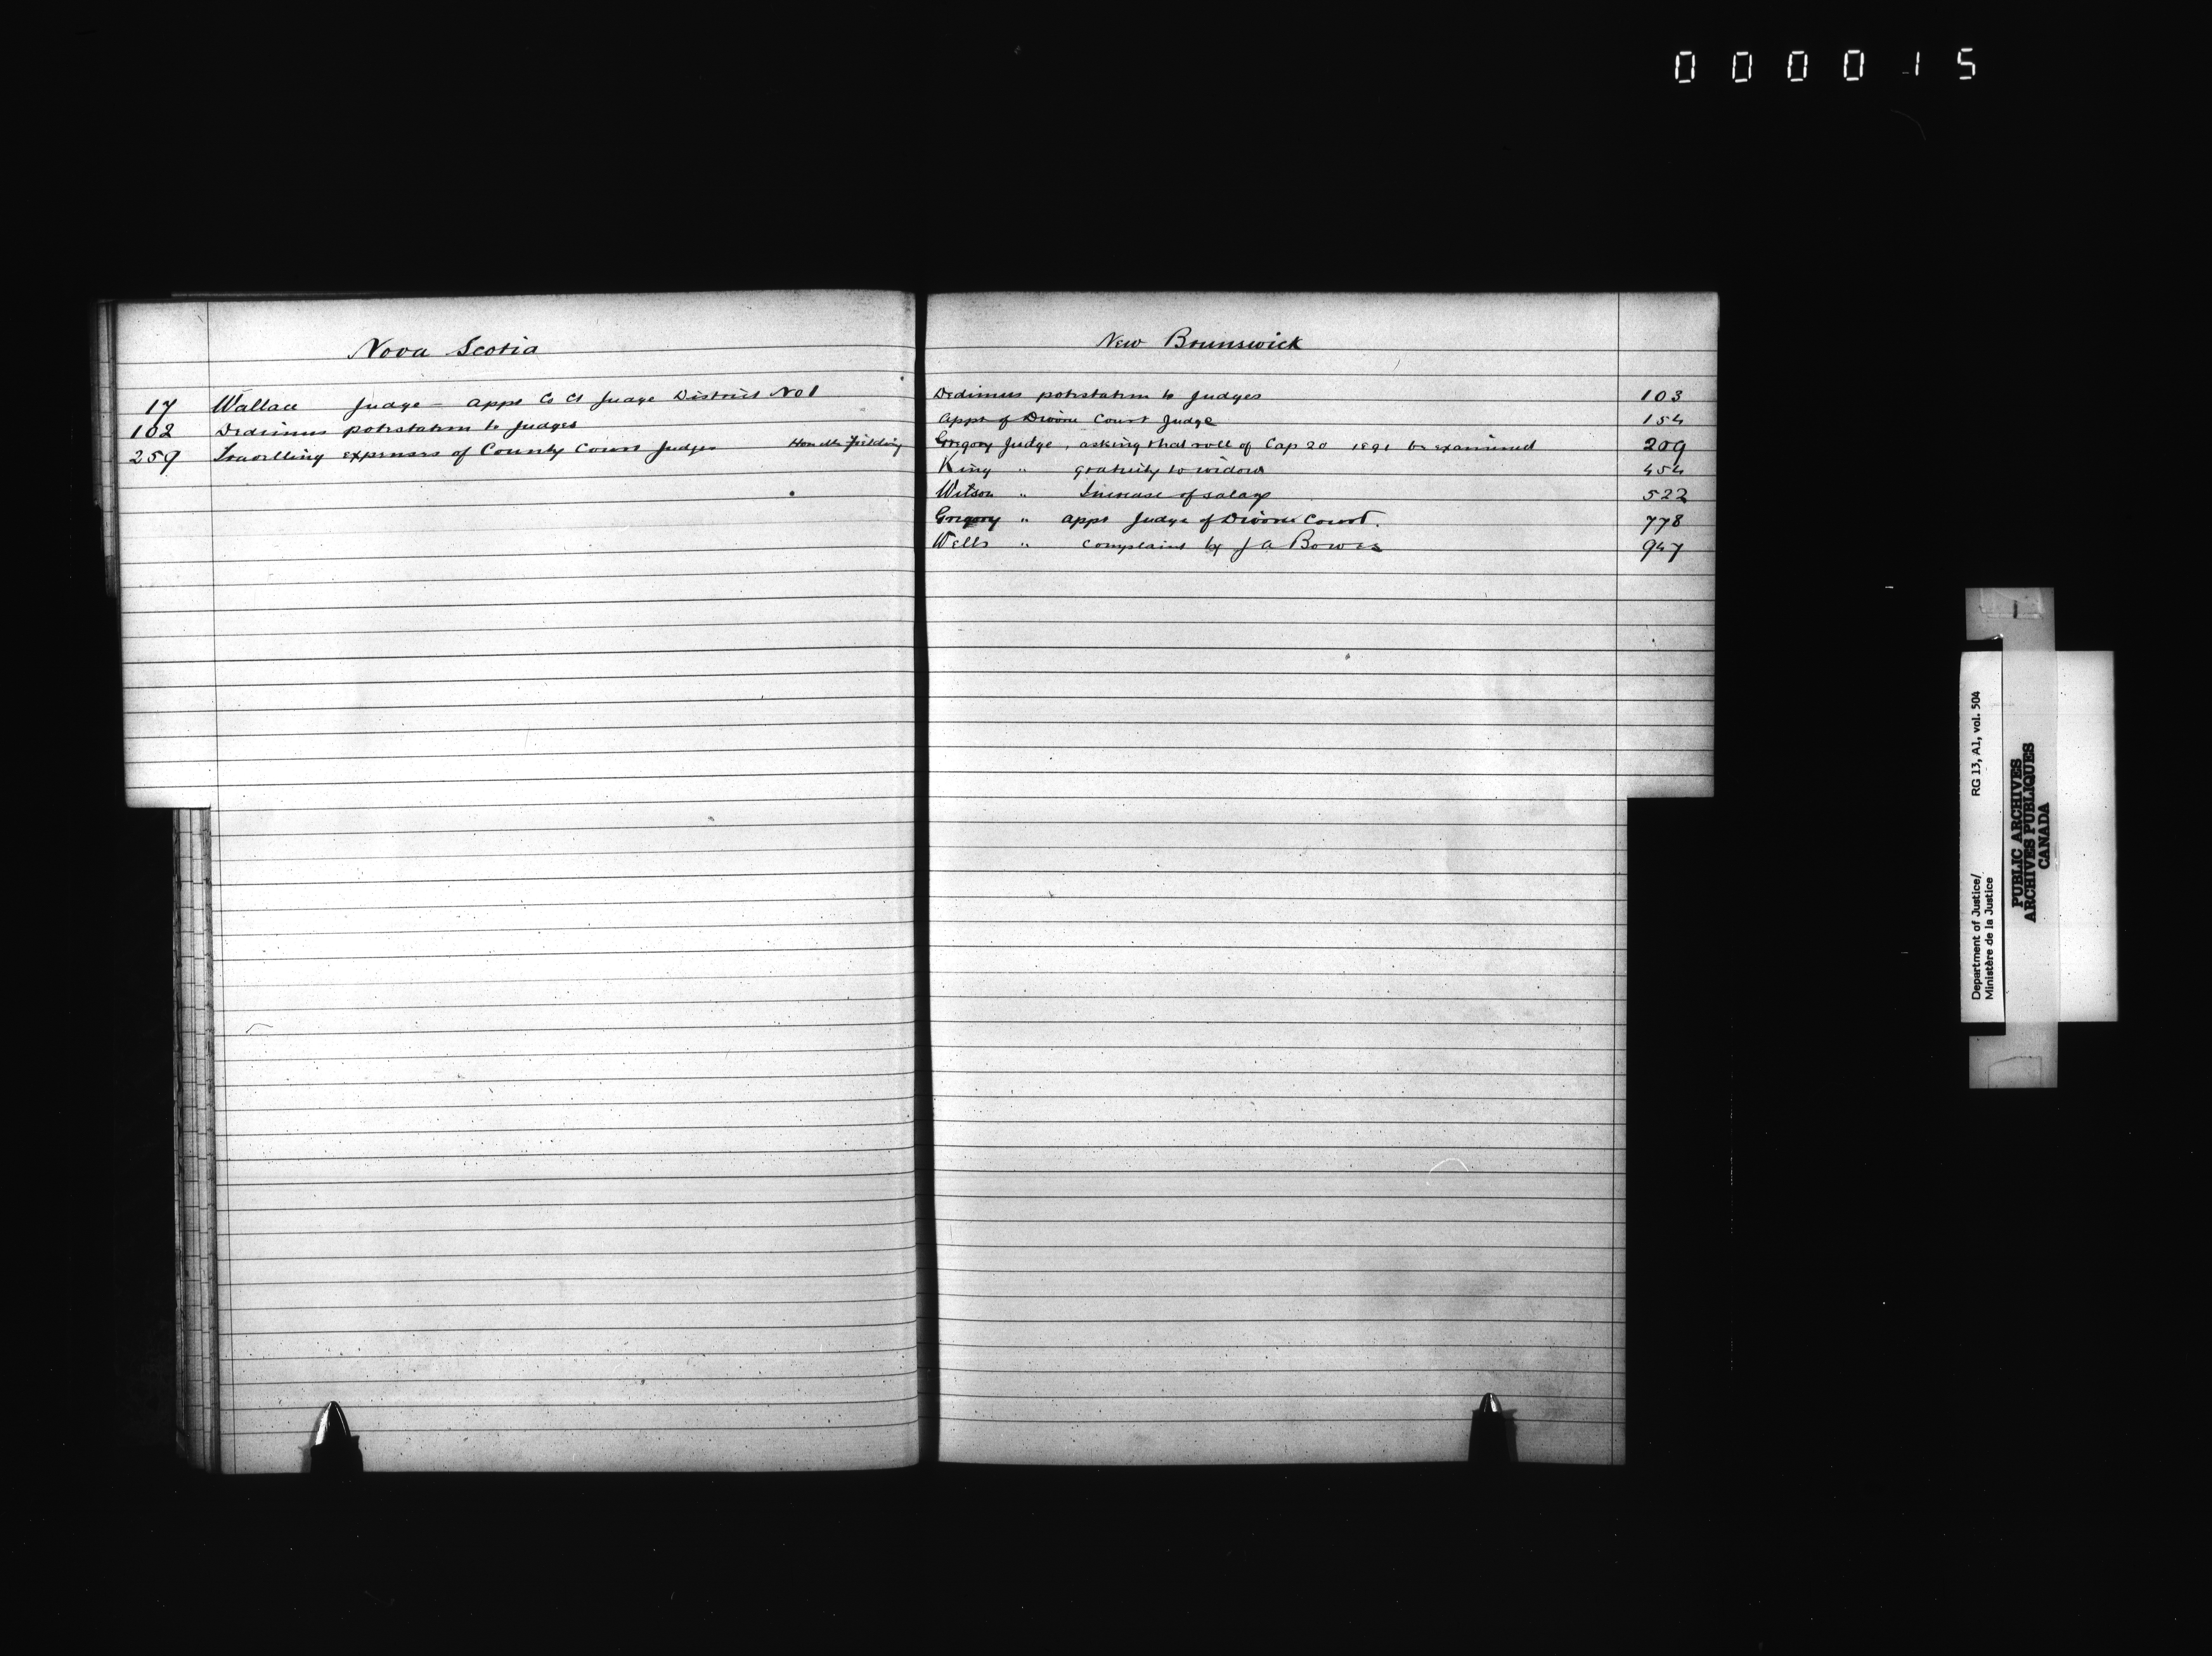 000015
Nova Scotia
17 Wallace Judge - appt Co Ct Judge District No 1
102 Dedimus potestatem to Judges
259 Travelling expenses of County Court Judges Hon Mr Fielding
New Brunswick
Dedimus potestatem to Judges 103
Appt of Divorce Court Judge 154
Gregory Judge, asking that roll of Cap 20 1891 be examined 209
King " gratuity to widow 454
Wilson " Increase of salary 522
Gregory " appt Judge of Divorce Court. 778
Wells " complaint by J A Bowes 947
1
Department of Justice/ RG 13, A1, vol. 504
Ministère de la Justice
PUBLIC ARCHIVES
ARCHIVES PUBLIQUES
CANADA